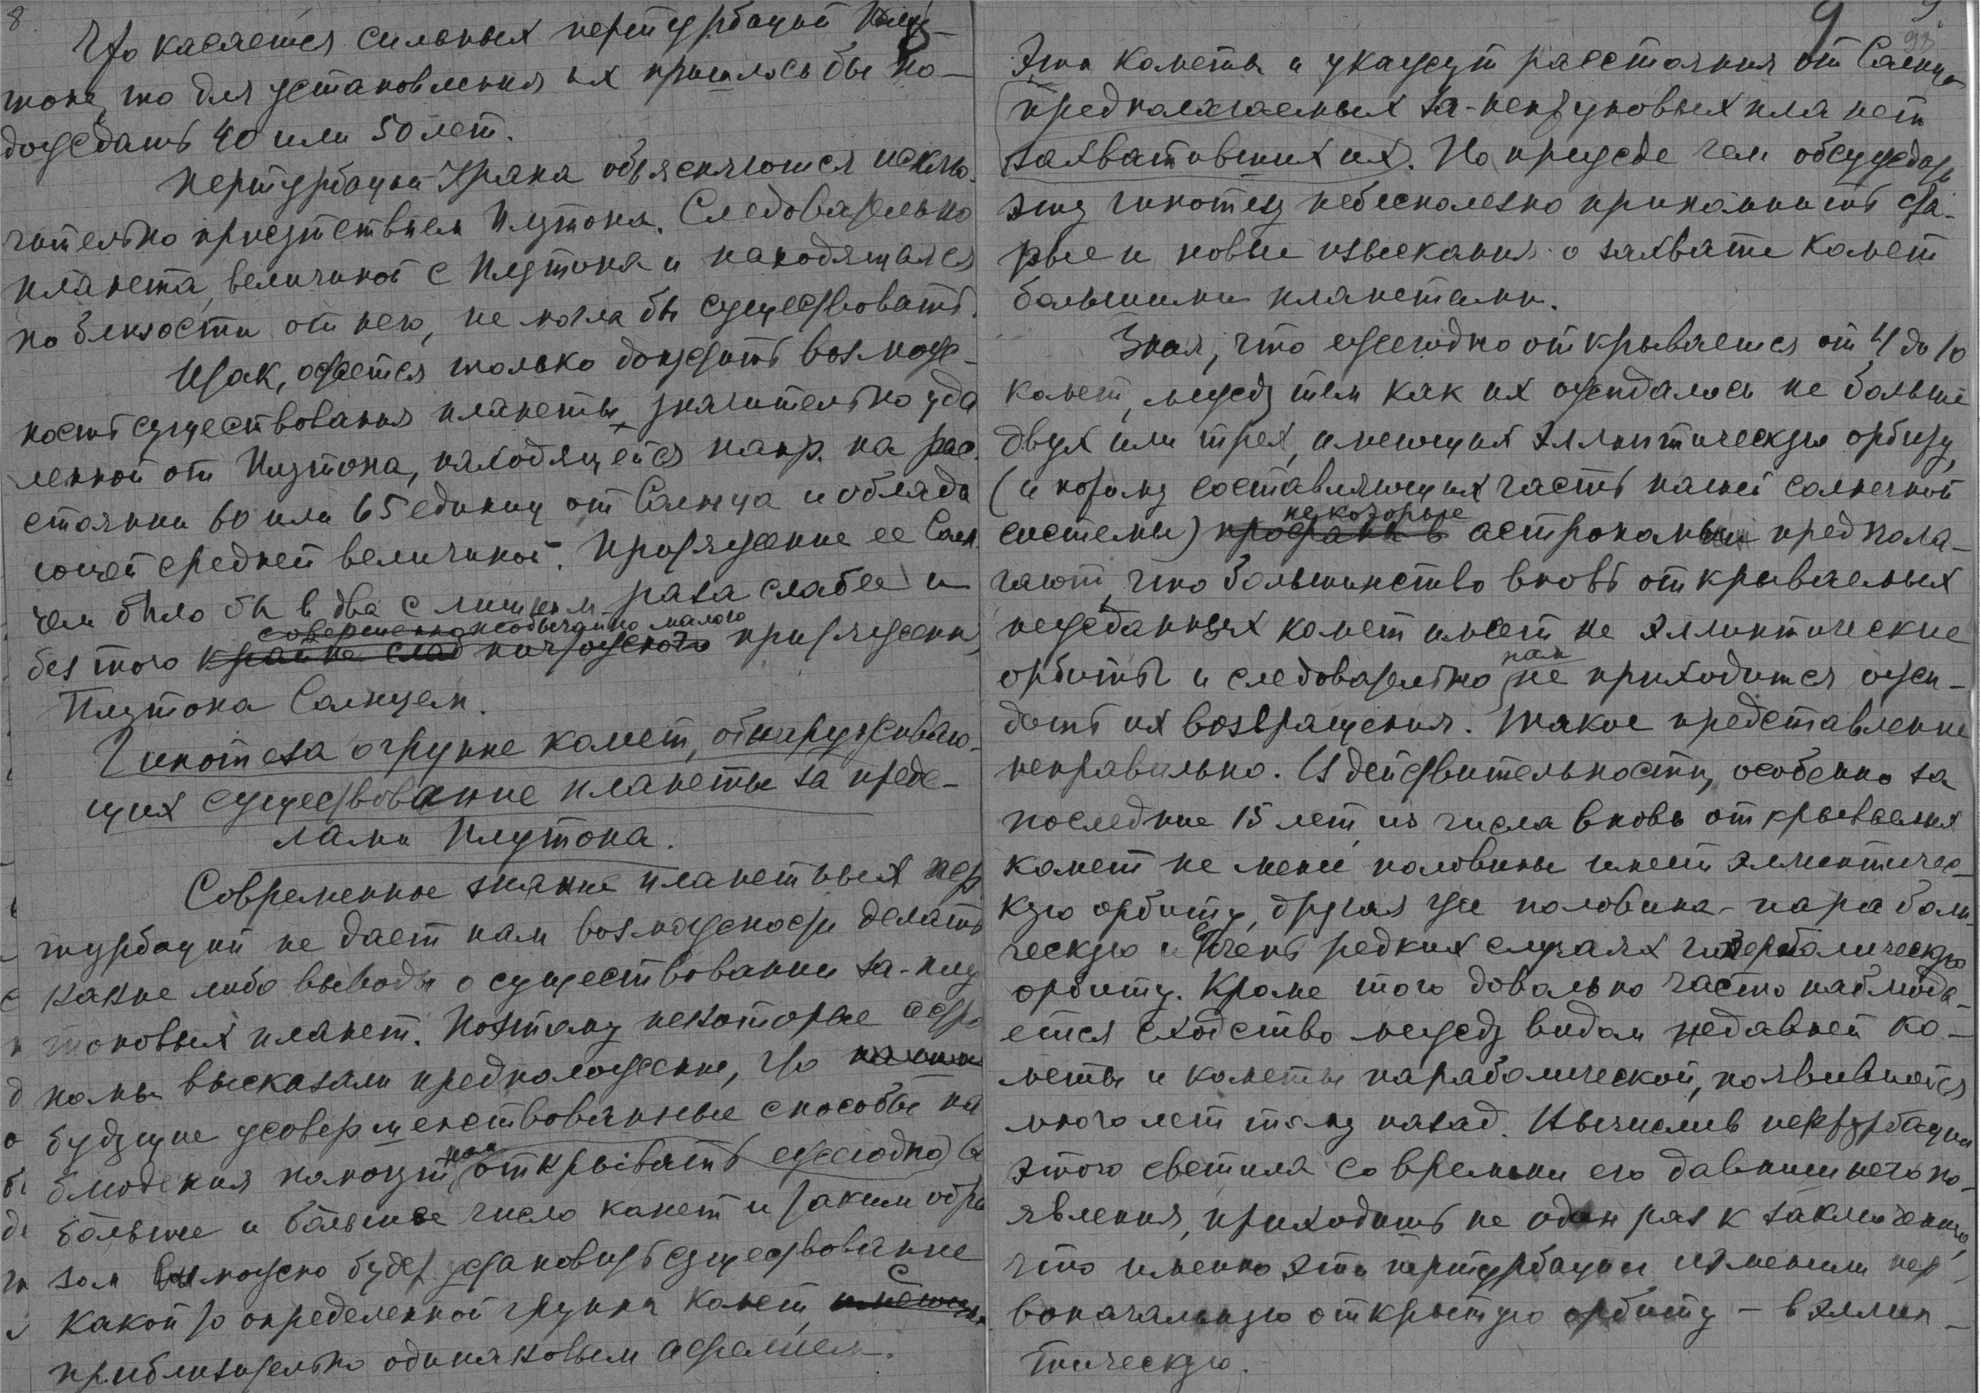 8
Что касается сильных пертурбаций Плу-
тона, то для установления их пришлось бы по-
дождать 40 или 50 лет.
Пертурбации Урана объясняются исклю-
чительно присутствием Плутона. Следовательно
планета, величиной с Плутона и находящаяся
по близости от него, не могла бы существовать.
Итак, остается только допустить возмож-
ность существования планеты, значительно уда
ленной от Плутона, находящейся напр. на рас-
стоянии 60 или 65 единиц от Солнца и облада
ющей средней величиной. Притяжение ее Солн
цем было бы в два с лишним раза слабее и
совершенно необычайно малого
без того крайне слаб ничтожного притяжения
Плутона Солнцем.
Гипотеза о группе комет, обнаруживаю-
щих существование планеты за преде-
лами Плутона.
Современное знание планетных пер
турбаций не дает нам возможности делать
какие либо выводы о существовании за-плу
тоновых планет. Поэтому некоторые астро
номы высказали предположение, что
будущие усовершенствованные способы на
блюдения помогут нам открывать ежегодно все
больше и большее число комет и таким обра
зом возможно будет установить существование
какой то определенной группы комет, с имеющих
приблизительно одинаковым афелием.
9 9.
93
Эти кометы и укажут расстояния от Солнца
предполагаемых за-нептуновых планет
захвативших их. Но прежде чем обсуждать
эту гипотезу небесполезно припомнить ста-
рые и новые изыскания о захвате комет
большими планетами.
Зная, что ежегодно открывается от 4 до 10
комет, между тем как их ожидалось не больше
двух или трех, имеющих эллиптическую орбиту,
(и потому составляющих часть нашей солнечной
некоторые
системы) профаны в астрономы предпола-
гают, что большинство вновь открываемых
нежданных комет имеет не эллиптические
орбиты и следовательно нам не приходится ожи-
дать их возвращения. Такое представление
неправильно. В действительности, особенно за
последние 15 лет, из числа вновь открываемых
комет не менее половины имеет эллиптичес-
кую орбиту, другая же половина - параболи-
ческую и в очень редких случаях гиперболическую
орбиту. Кроме того довольно часто наблюда-
ется сходство между видом недавней ко-
меты и кометы параболической, появившейся
много лет тому назад. Вычислив пертурбации
этого светила со времени его давнишнего по-
явления, приходишь не один раз к заключению,
что именно эти пертурбации изменили пер
воначальную открытую орбиту - в эллип-
тическую.